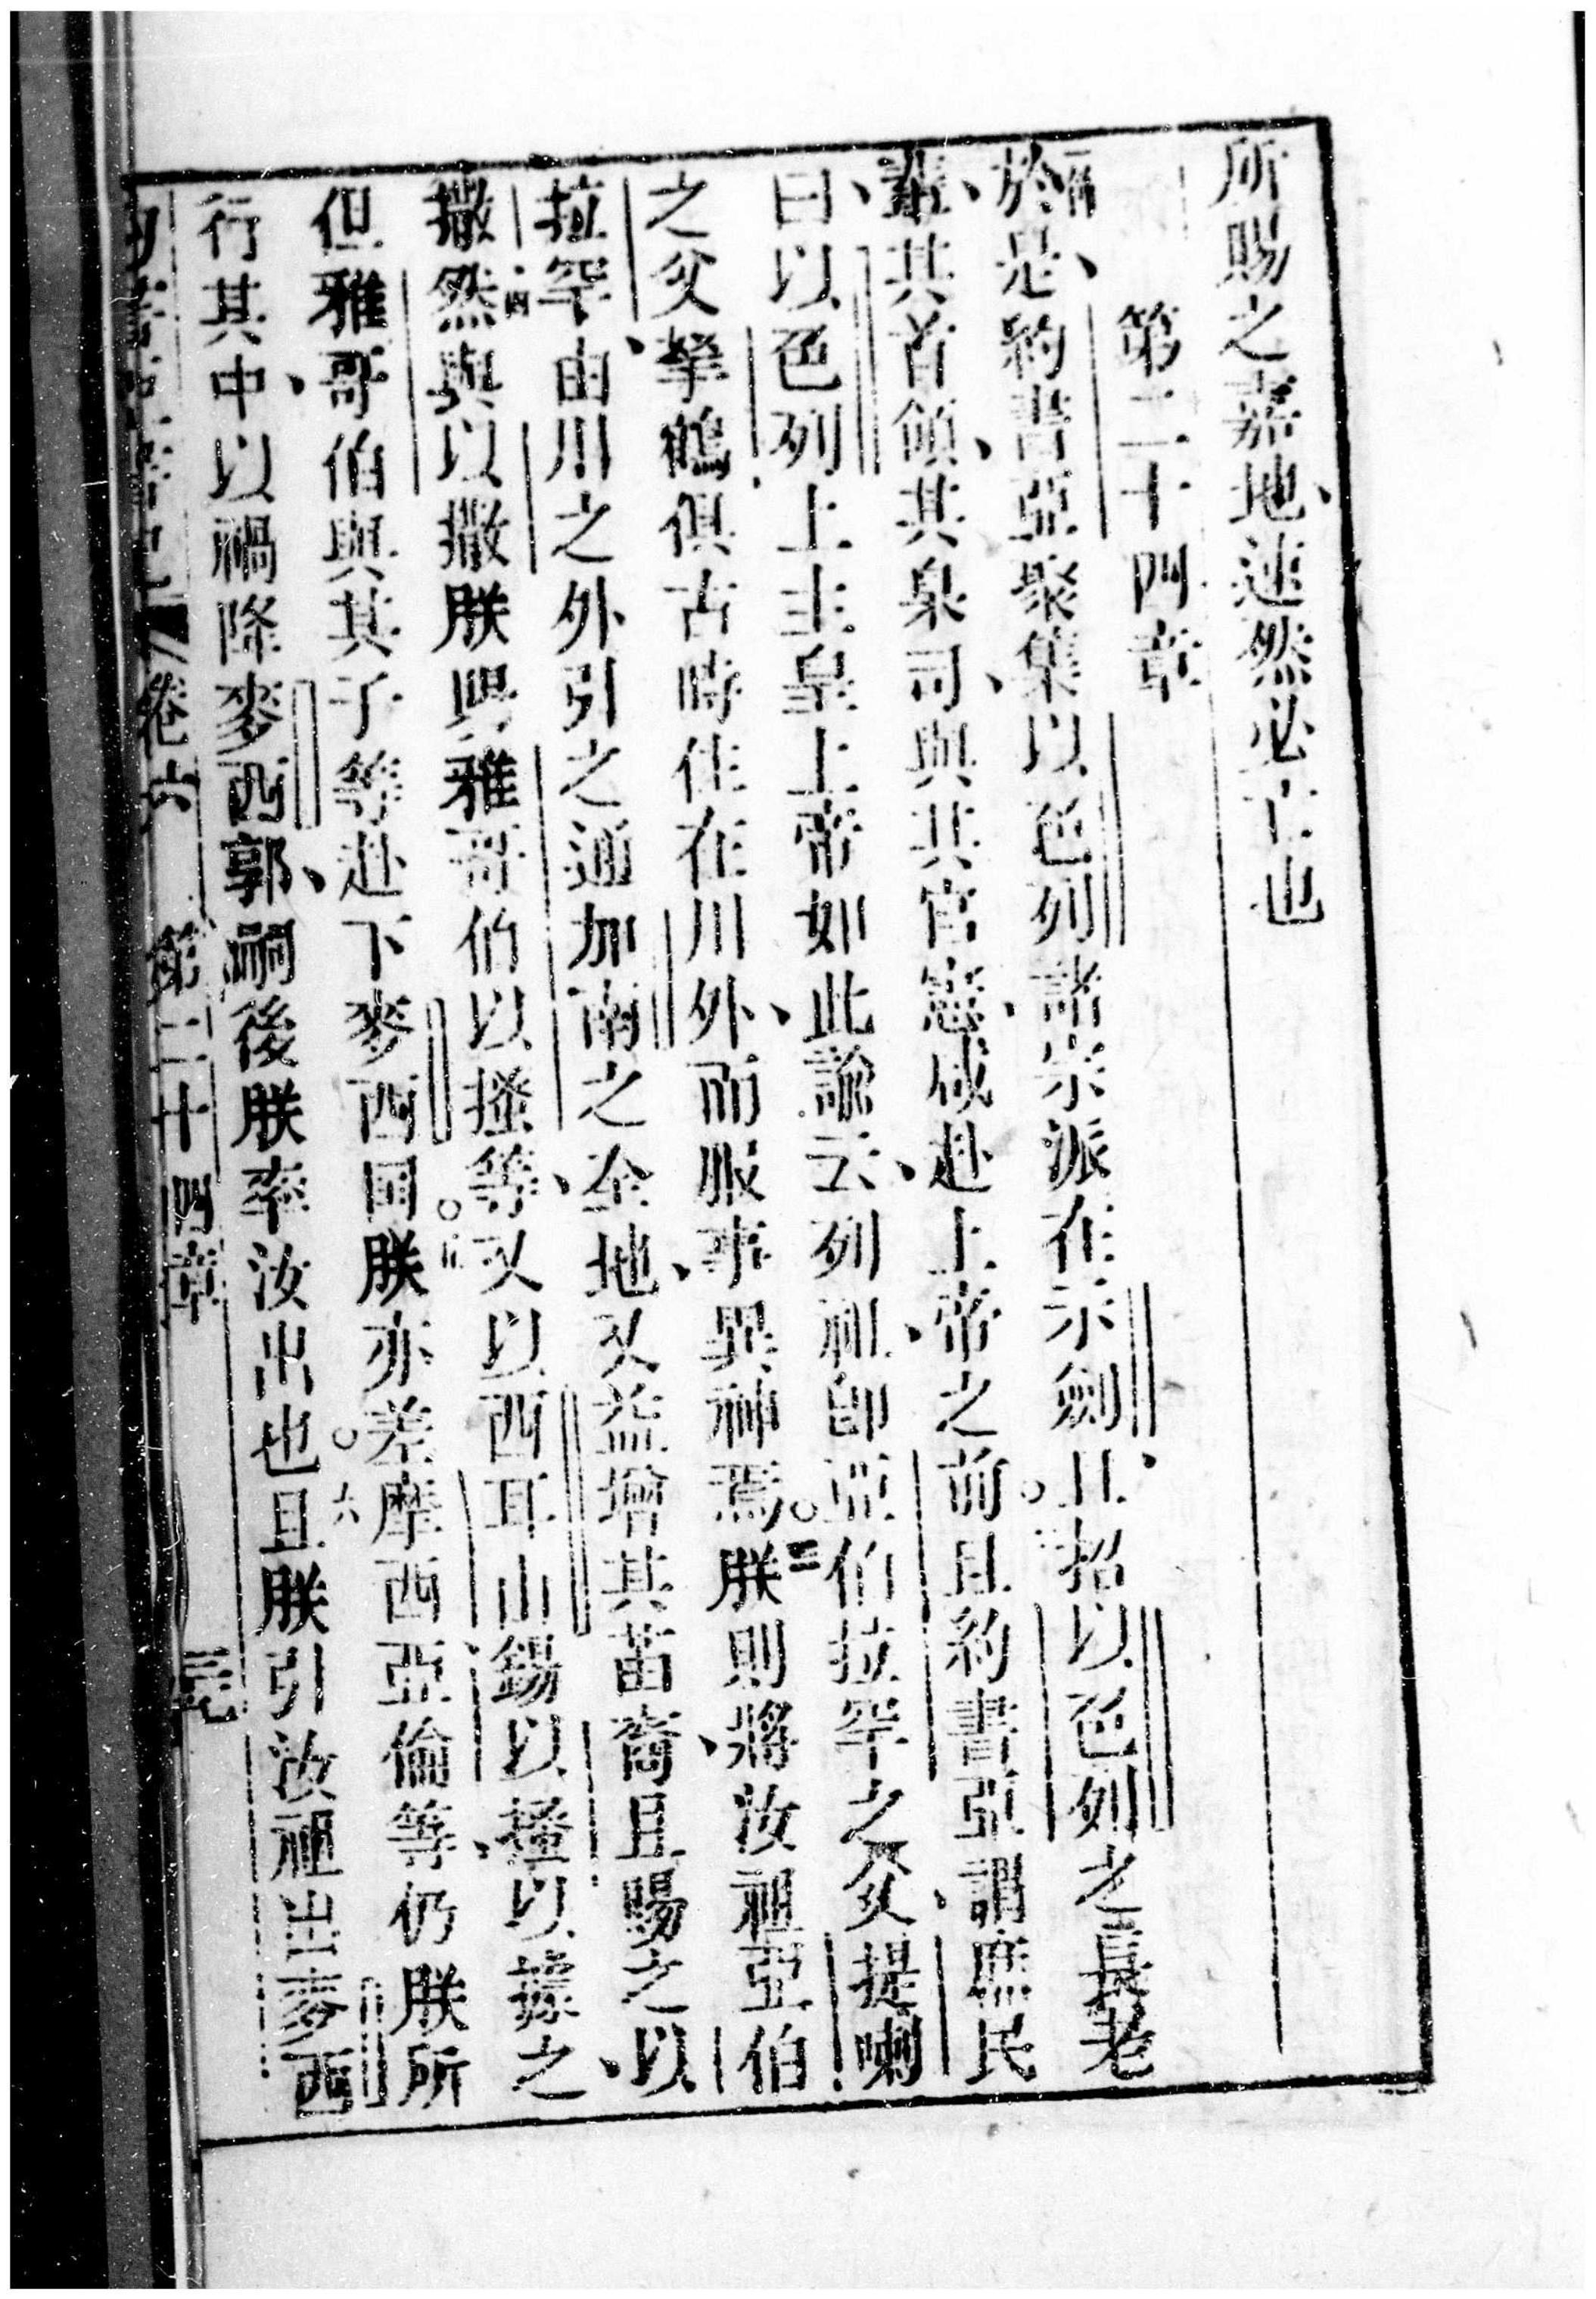 所賜之嘉地、速然必亡也
第二十四章
於是、約書亞聚集以色列諸宗派在示劍、且招以色列之長老
輩、其首領、其臬司、與其官憲、咸赴上帝之前。二且約書亞謂庶民
曰、以色列上主皇上帝如此諭云、列祖、即亞伯拉罕之父、提喇
之父拏鶴俱古時住在川外、而服事異神焉。三朕則將汝祖亞伯
拉罕、由川之外引之通加南之全地、又益增其苗裔、且賜之、以
撒四然與以撒朕與雅哥伯以搔等、又以西耳山錫以搔、以據之
但雅哥伯與其子等赴下麥西囯。五朕亦差摩西亞倫等仍朕所
行其中、以禍降麥西郭、嗣後朕率汝出也。六且朕引汝祖出麥西
卷六 第二十四章